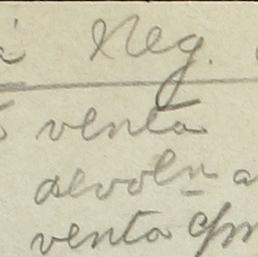 Neg.
venta
devoln a
venta c/m